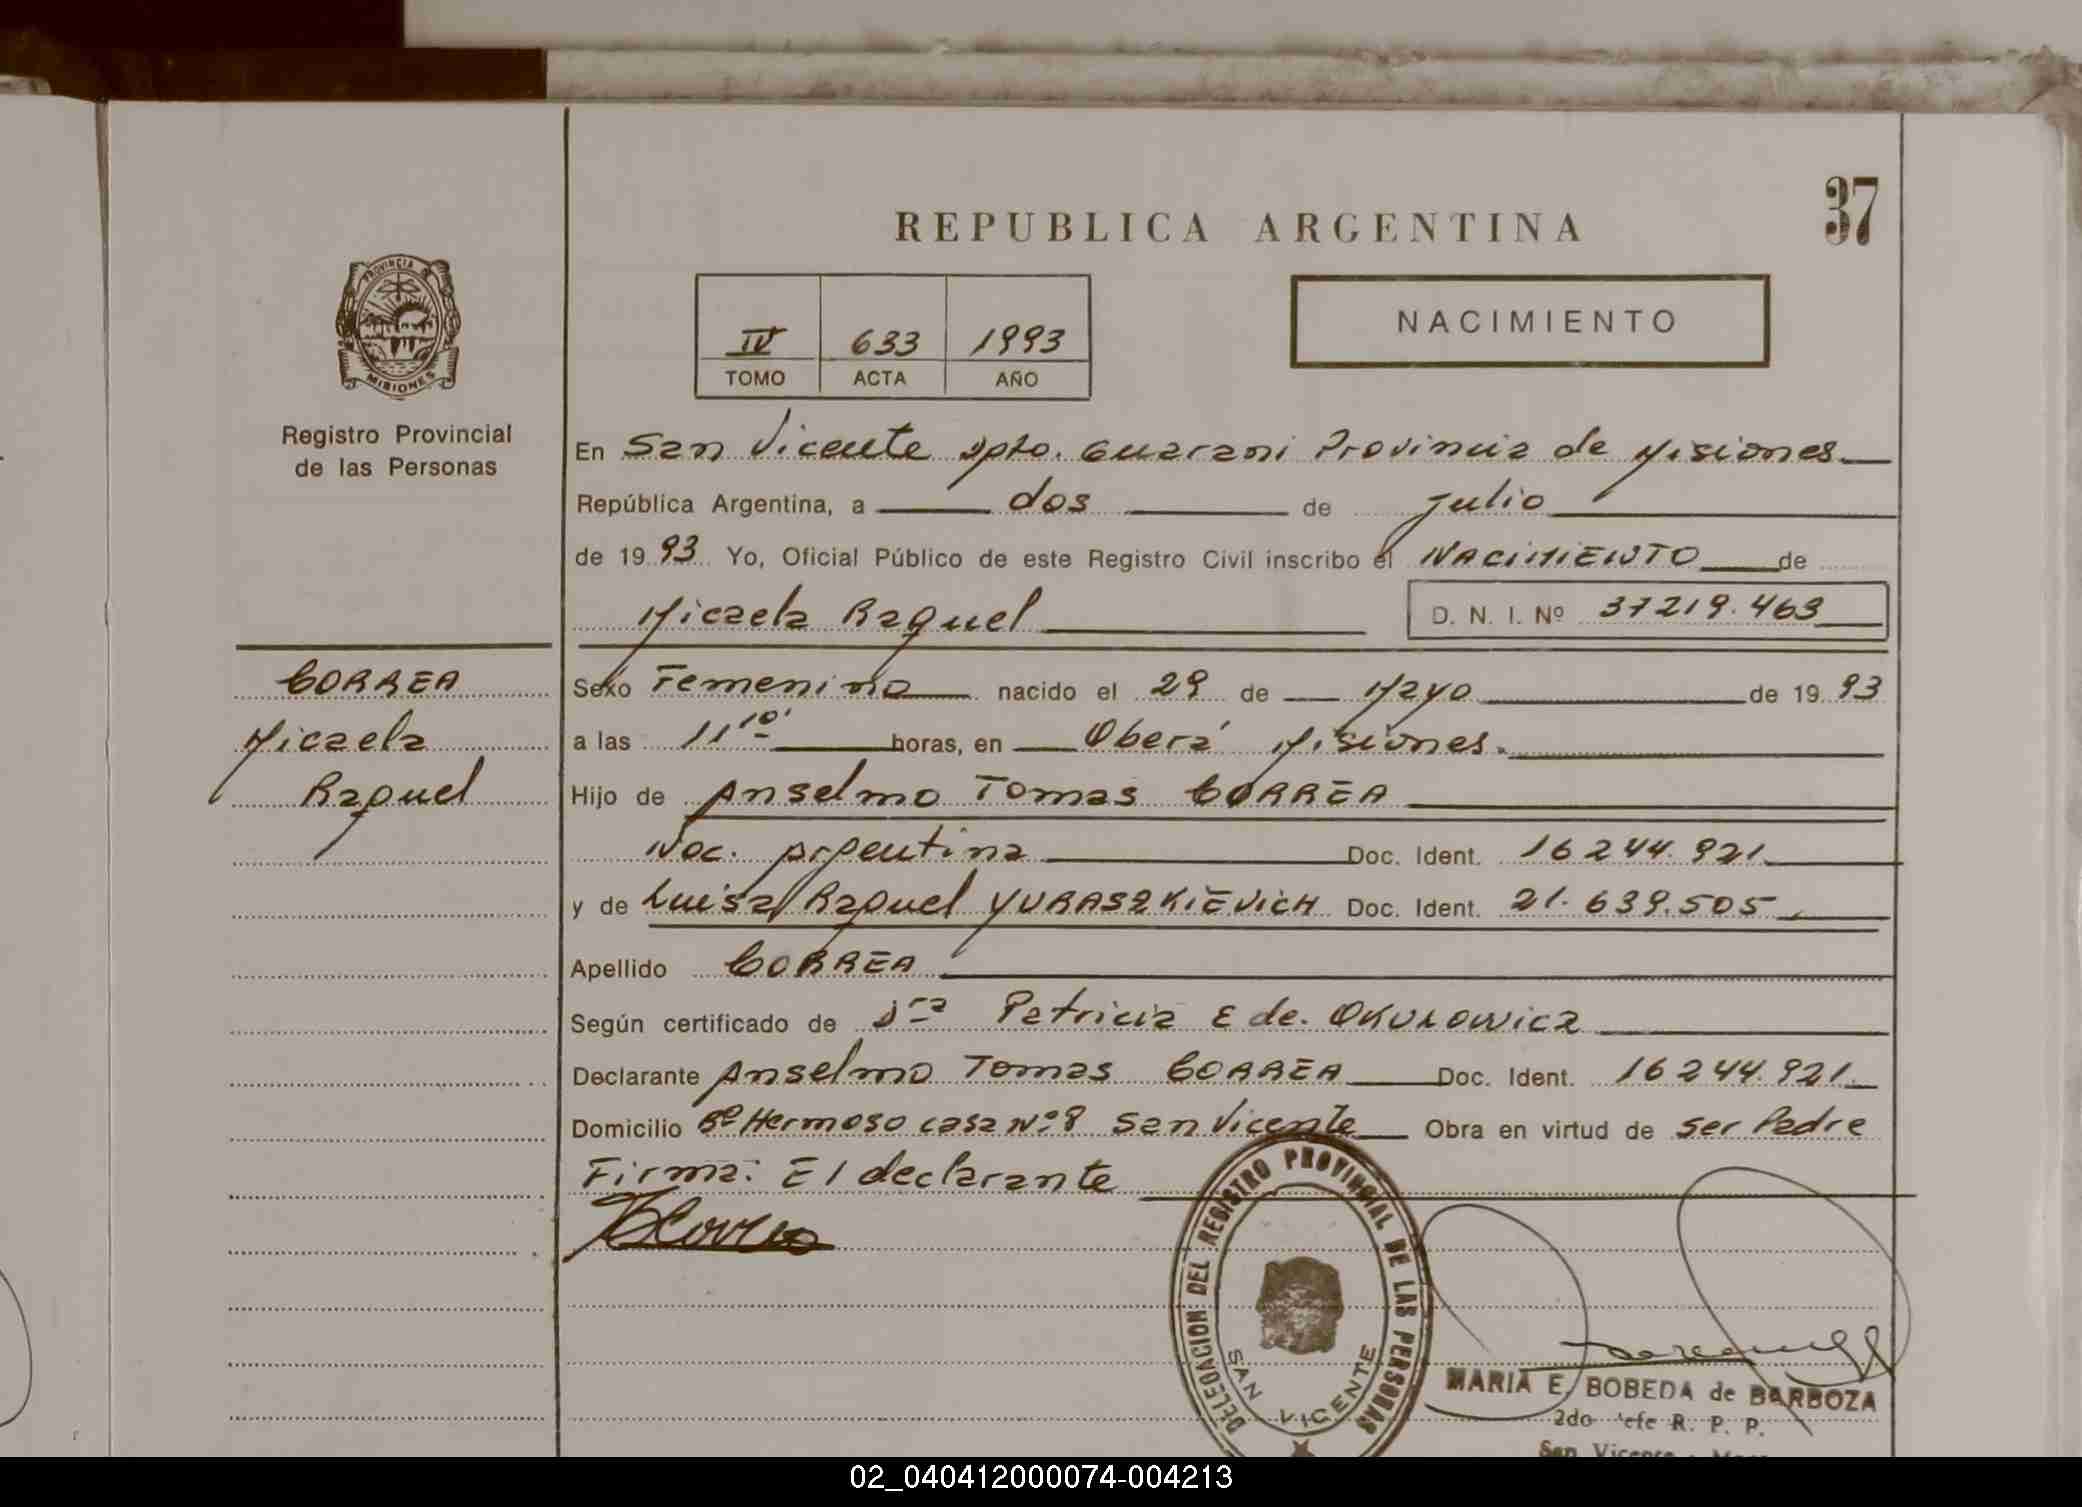 37
REPUBLICA ARGENTINA
PROVINCIA DE
MISIONES
Registro Provincial
de las Personas
IV 633 1993
TOMO ACTA AÑO
NACIMIENTO
En San Vicente Dpto. Guarani Provincia de Misiones
República Argentina, a dos de Julio
de 1993 Yo, Oficial Público de este Registro Civil inscribo el NACIMIENTO de
Micaela Raquel D. N. I. Nº 37219.463
CORREA
Micaela
Raquel
Sexo Femenino nacido el 29 de Mayo de 1993
a las 11 10' horas, en Oberá Misiones.
Hijo de Anselmo Tomas CORREA
Nac. Argentina Doc. Ident. 16244.921
y de Luisa Raquel YURASZKIEVICH Doc. Ident. 21.639.505
Apellido CORREA
Según certificado de Dra Patricia E de. OKULOWICZ
Declarante Anselmo Tomas CORREA Doc. Ident. 16244.921
Domicilio Bº Hermoso casa Nº 8 San Vicente Obra en virtud de ser Padre
Firma: El declarante
DELEGACION DEL REGISTRO PROVINCIAL DE LAS PERSONAS
SAN VICENTE
MARIA E. BOBEDA de BARBOZA
2do Jefe R. P. P.
San Vicente
02_040412000074-004213